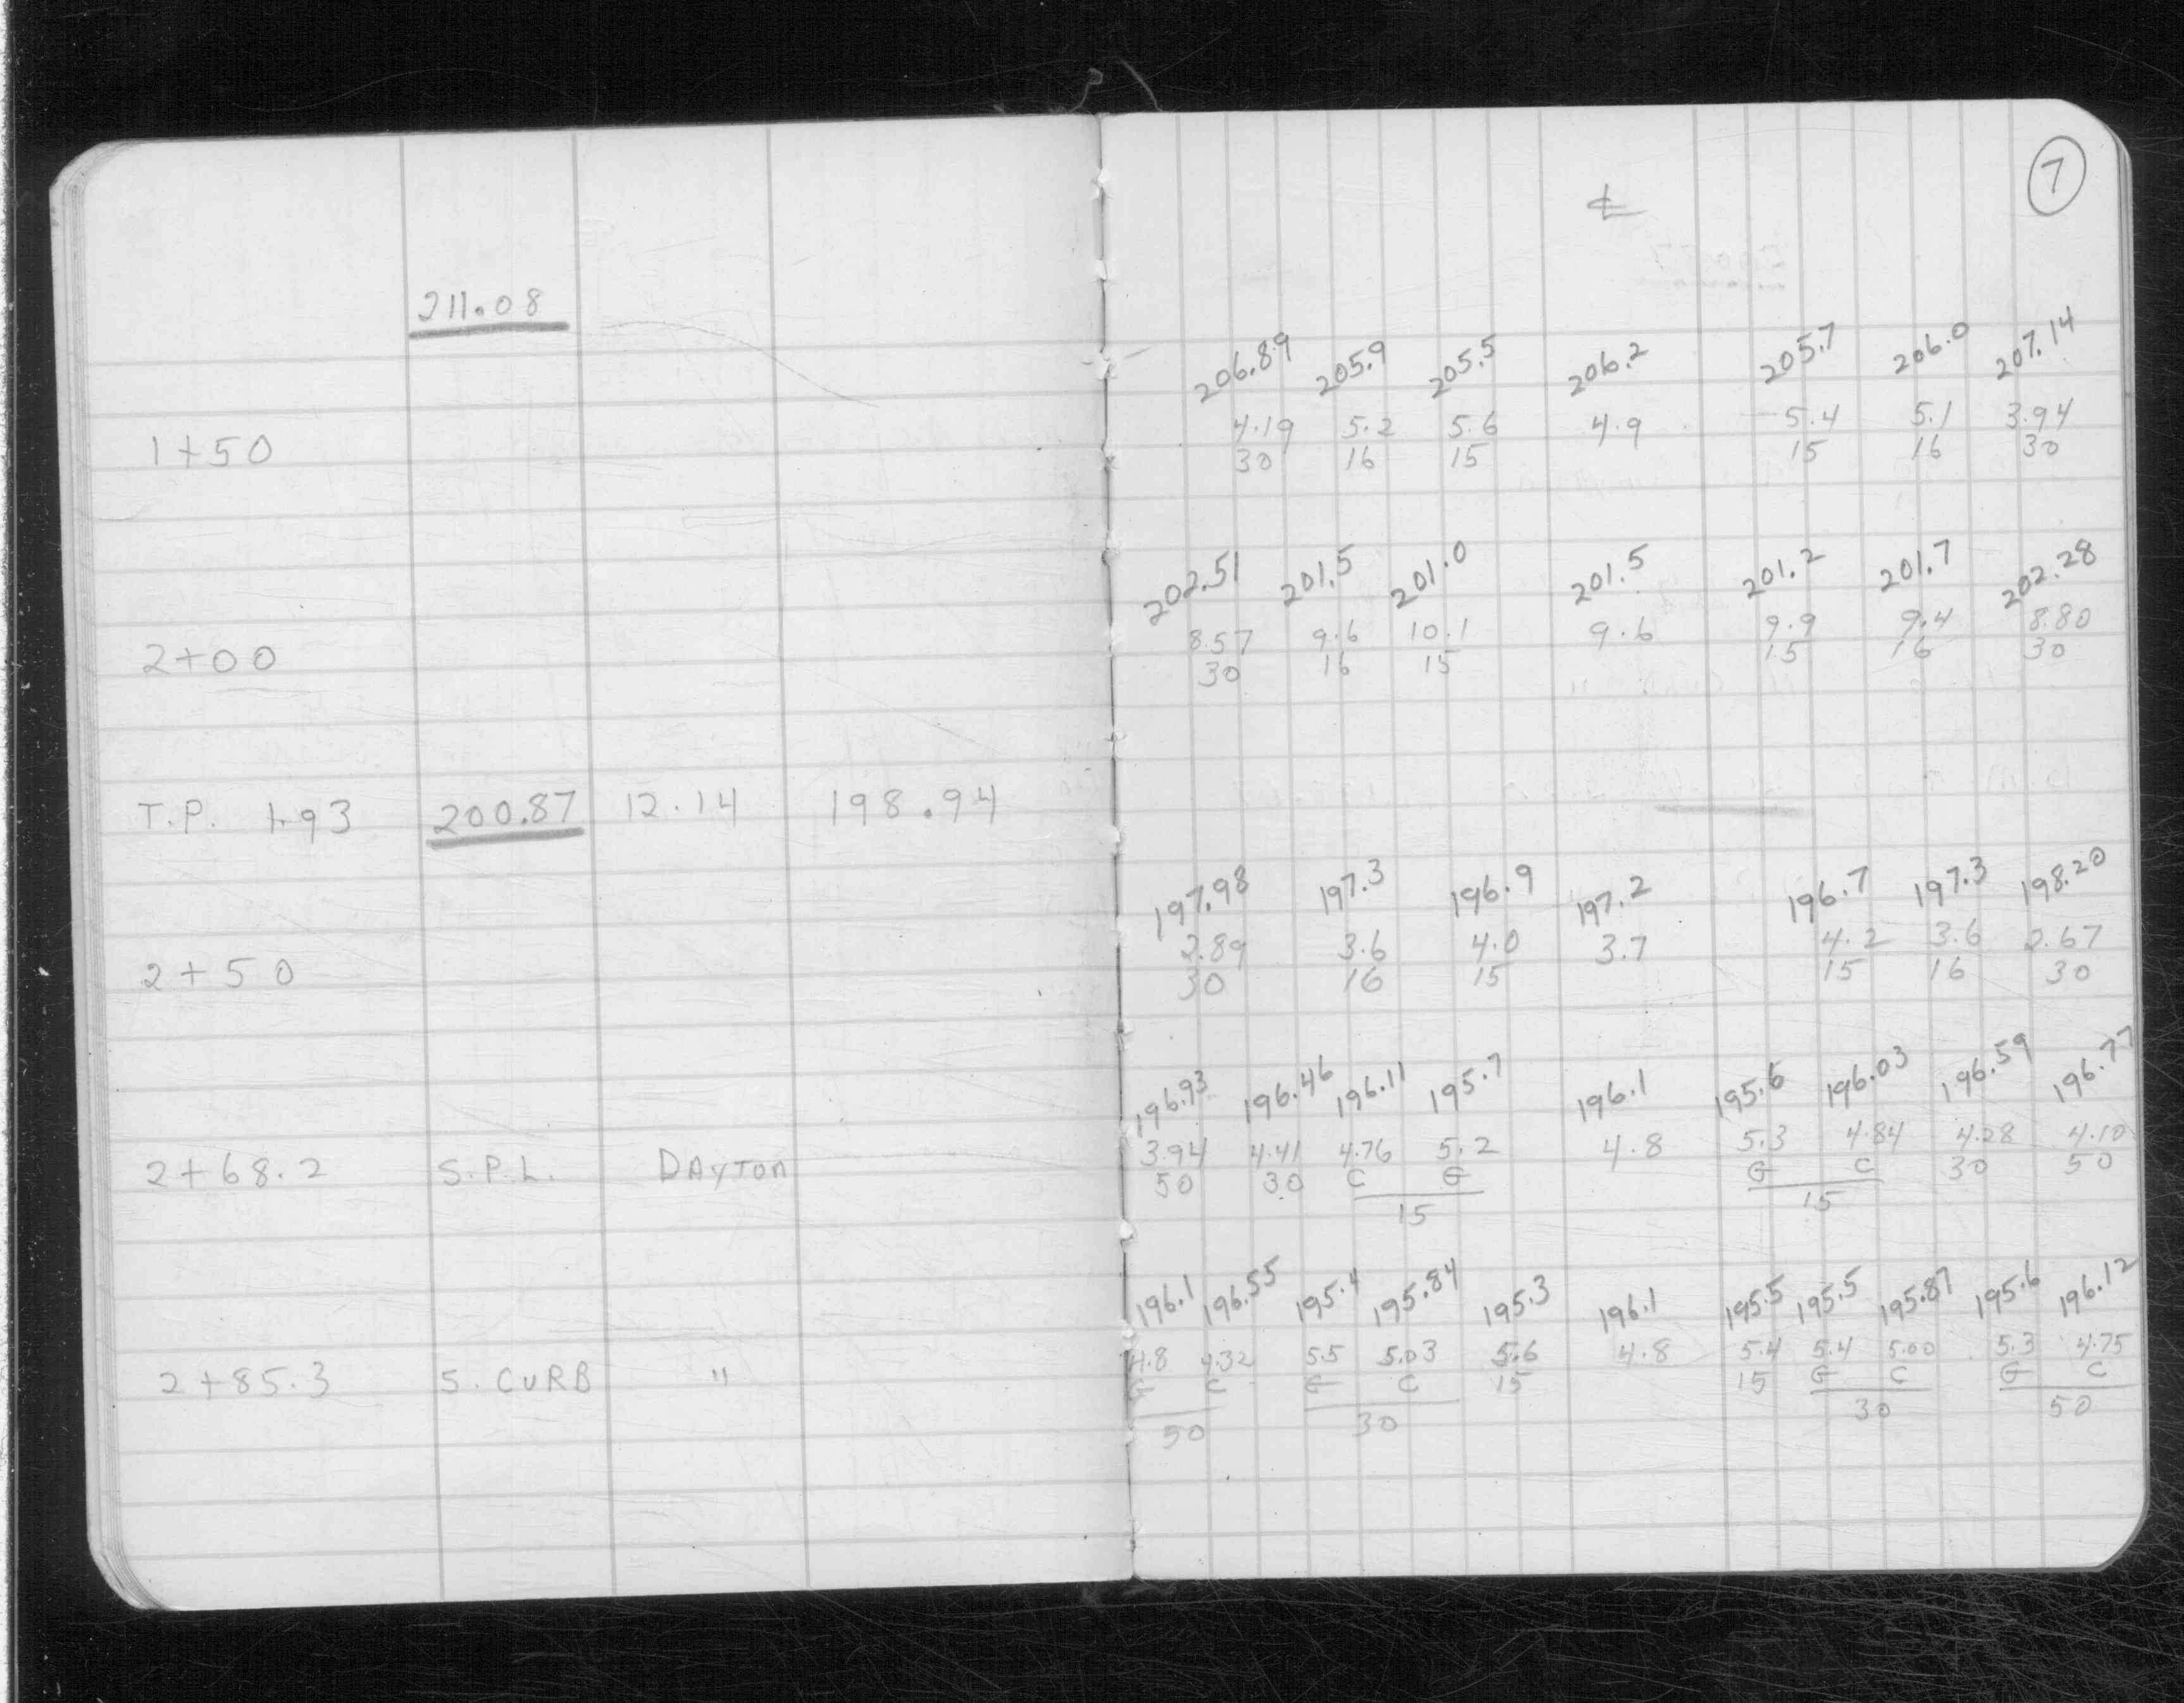 7
℄
211.08
206.89 205.9 205.5 206.2 205.7 206.0 207.14
1+50 4.19 5.2 5.6 4.9 5.4 5.1 3.94
30 16 15 15 16 30
202.51 201.5 201.0 201.5 201.2 201.7 202.28
2+00 8.57 9.6 10.1 9.6 9.9 9.4 8.80
30 16 15 15 16 30
T.P. 1.93 200.87 12.14 198.94
197.98 197.3 196.9 197.2 196.7 197.3 198.20
2+50 2.89 3.6 4.0 3.7 4.2 3.6 2.67
30 16 15 15 16 30
196.93 196.46 196.11 195.7 196.1 195.6 196.03 196.59 196.77
2+68.2 S.P.L. DAYTON 3.94 4.41 4.76 5.2 4.8 5.3 4.84 4.28 4.10
50 30 C G G C 30 50
15 15
196.1 196.55 195.4 195.84 195.3 196.1 195.5 195.5 195.87 195.6 196.12
2+85.3 S. CURB " 4.8 4.32 5.5 5.03 5.6 4.8 5.4 5.4 5.00 5.3 4.75
G C G C 15 15 G C G C
50 30 30 50